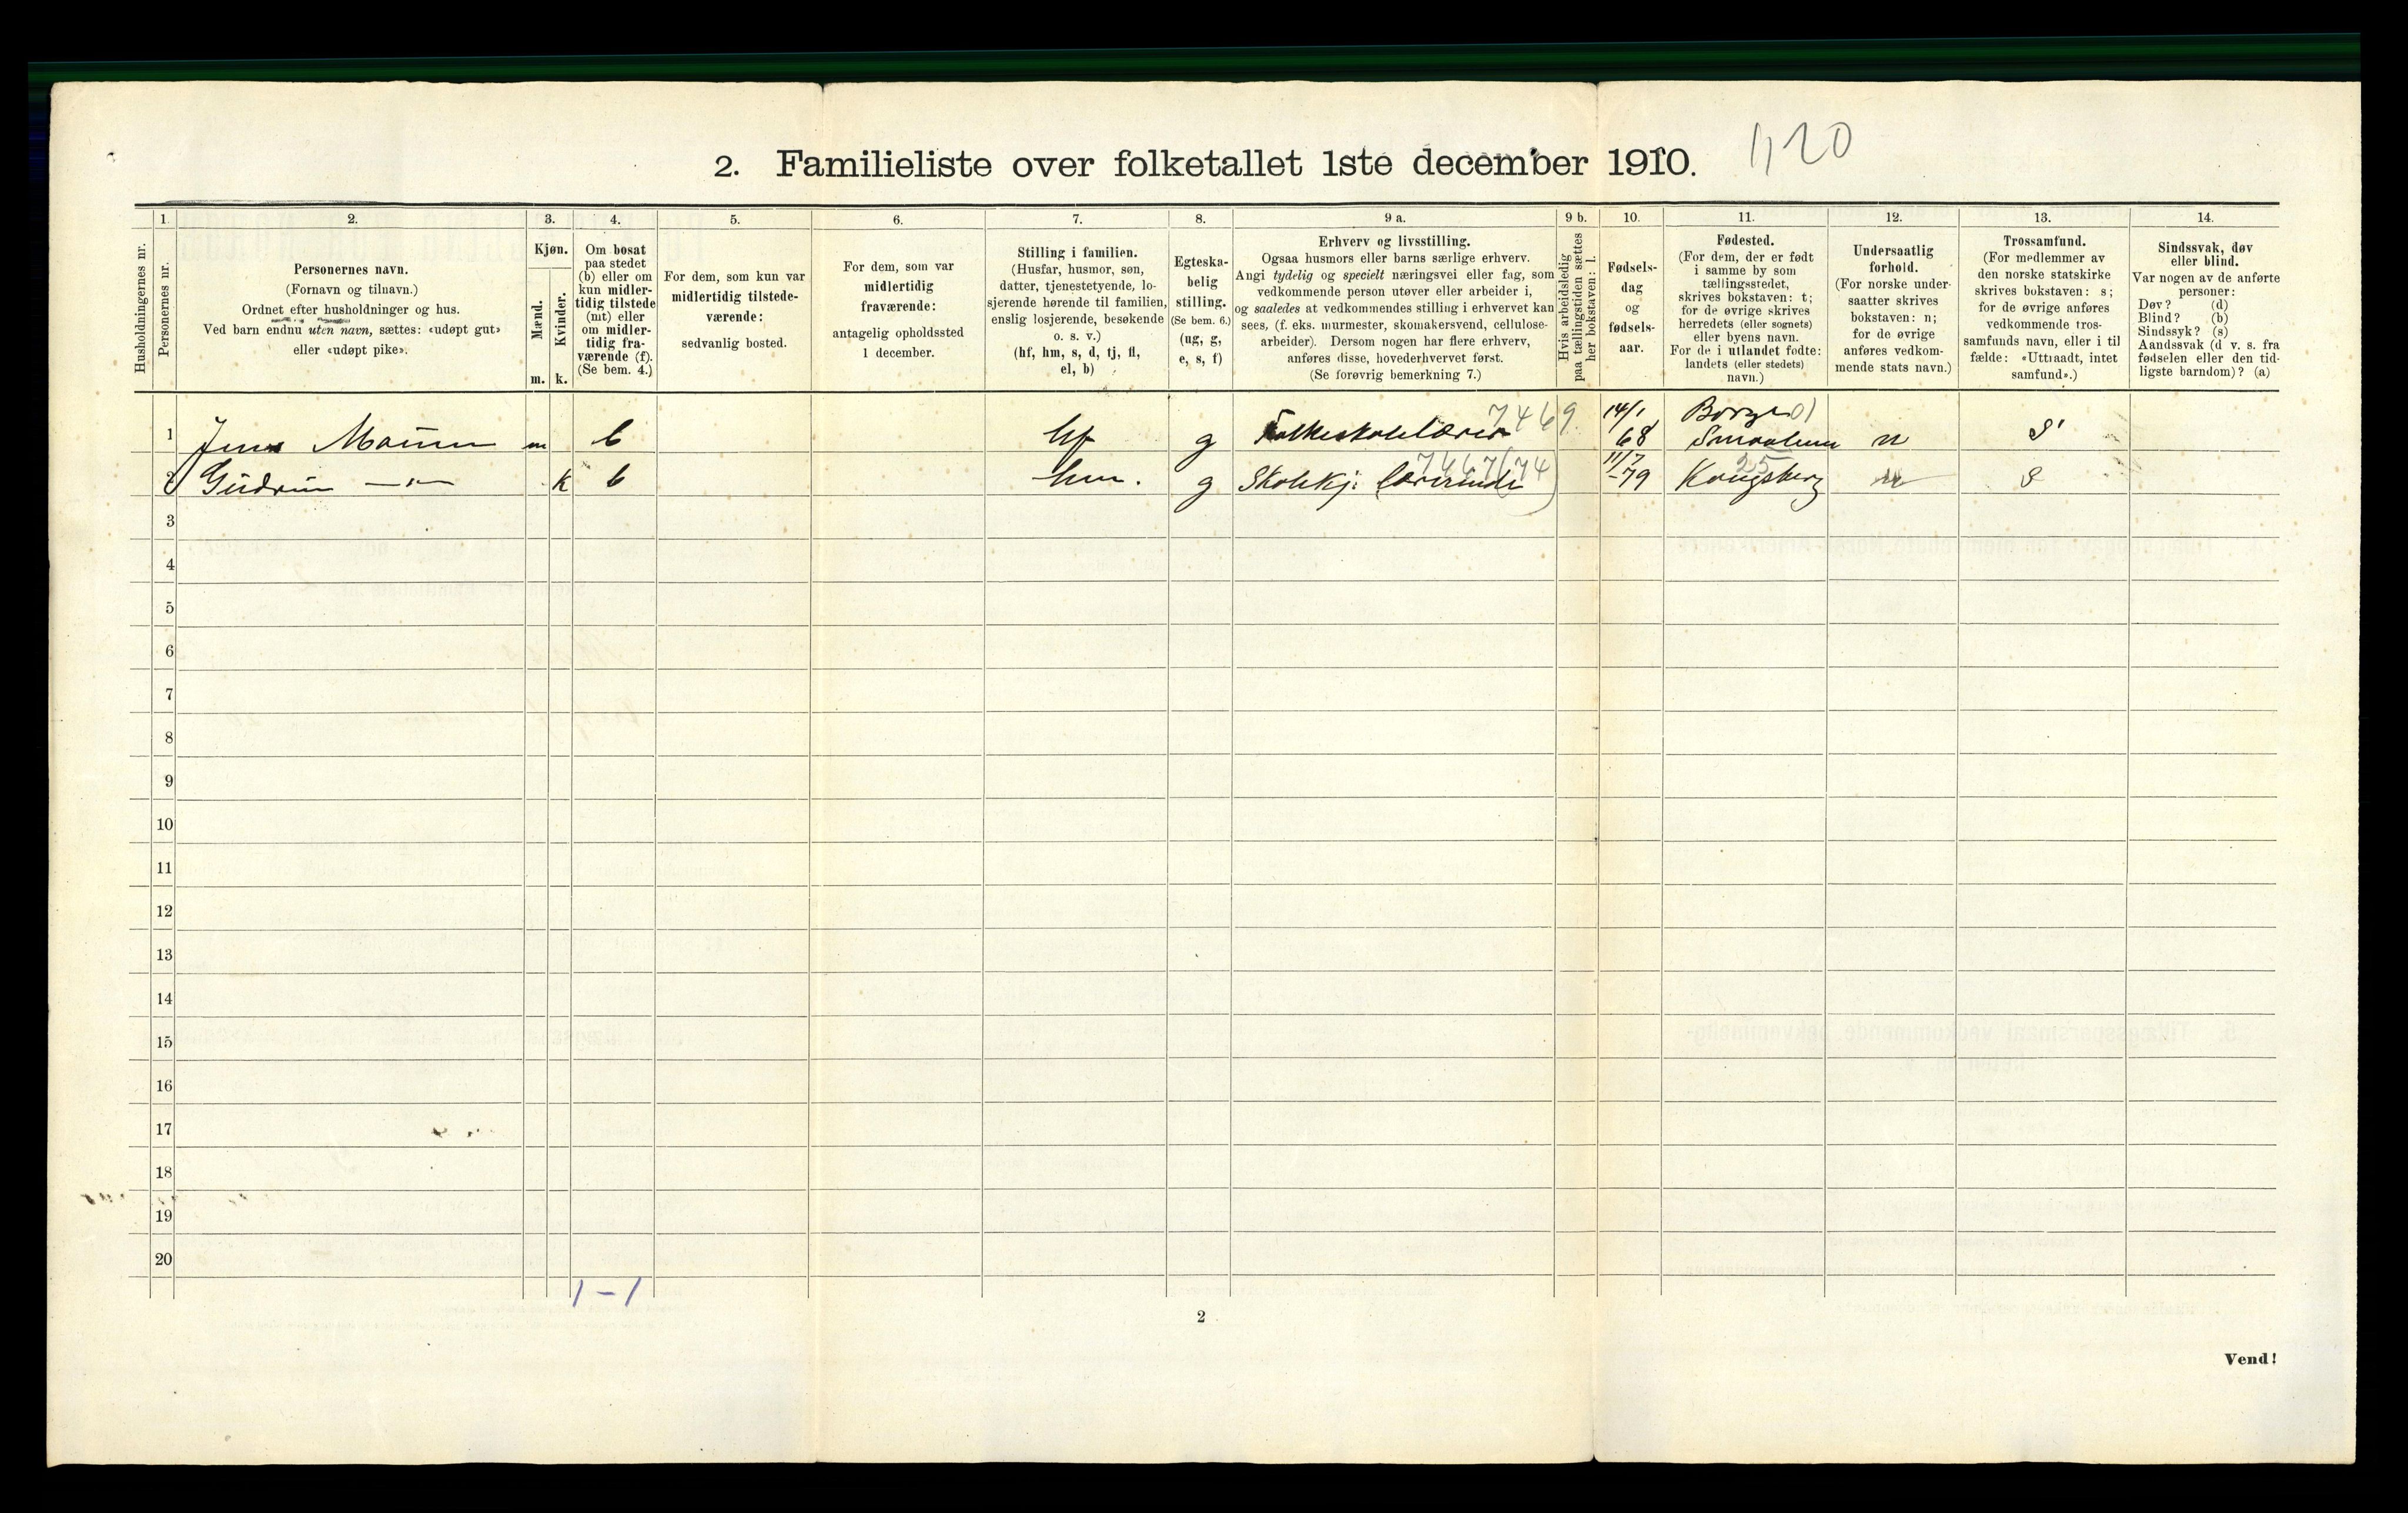 2. Familieliste over folketallet 1ste december 1910.
1120
1. 2. 3. 4. 5. 6. 7. 8. 9 a. 9 b. 10. 11. 12. 13. 14.
Husholdningernes nr.
Personernes nr.
Personernes navn.
(Fornavn og tilnavn.)
Ordnet efter husholdninger og hus.
Ved barn endnu uten navn, sættes: «udøpt gut»
eller «udøpt pike».
Kjøn.
Mænd.
Kvinder.
m. k.
Om bosat
paa stedet
(b) eller om
kun midler-
tidig tilstede
(mt) eller
om midler-
tidig fra-
værende (f).
(Se bem. 4.)
For dem, som kun var
midlertidig tilstede-
værende:
sedvanlig bosted.
For dem, som var
midlertidig
fraværende:
antagelig opholdssted
1 december.
Stilling i familien.
(Husfar, husmor, søn,
datter, tjenestetyende, lo-
sjerende hørende til familien,
enslig losjerende, besøkende
o. s. v.)
(hf, hm, s, d, tj, fl,
el, b)
Egteska-
belig
stilling.
(Se bem. 6.)
(ug, g,
e, s, f)
Erhverv og livsstilling.
Ogsaa husmors eller barns særlige erhverv.
Angi tydelig og specielt næringsvei eller fag, som
vedkommende person utøver eller arbeider i,
og saaledes at vedkommendes stilling i erhvervet kan
sees, (f. eks. murmester, skomakersvend, cellulose-
arbeider). Dersom nogen har flere erhverv,
anføres disse, hovederhvervet først.
(Se forøvrig bemerkning 7.)
Hvis arbeidsledig
paa tællingstiden sættes
her bokstaven: l.
Fødsels-
dag
og
fødsels-
aar.
Fødested.
(For dem, der er født
i samme by som
tællingsstedet,
skrives bokstaven: t;
for de øvrige skrives
herredets (eller sognets)
eller byens navn.
For de i utlandet fødte:
landets (eller stedets)
navn.)
Undersaatlig
forhold.
(For norske under-
saatter skrives
bokstaven: n;
for de øvrige
anføres vedkom-
mende stats navn.)
Trossamfund.
(For medlemmer av
den norske statskirke
skrives bokstaven: s;
for de øvrige anføres
vedkommende tros-
samfunds navn, eller i til
fælde: «Uttraadt, intet
samfund».)
Sindssvak, døv
eller blind.
Var nogen av de anførte
personer:
Døv? (d)
Blind? (b)
Sindssyk? (s)
Aandssvak (d v. s. fra
fødselen eller den tid-
ligste barndom)? (a)
7469. 14/1 Borge 01
1 Jens m b hf g Folkeskolelærer 68 Smaalene n S
7467(74) 11/7 25
2 Gudrun —"— k b hm. g Skolekj: lærerinde -79 Kongsberg n S
3
4
5
6
7
8
9
10
11
12
13
14
15
16
17
18
19
20
1 - 1
2
Vend!